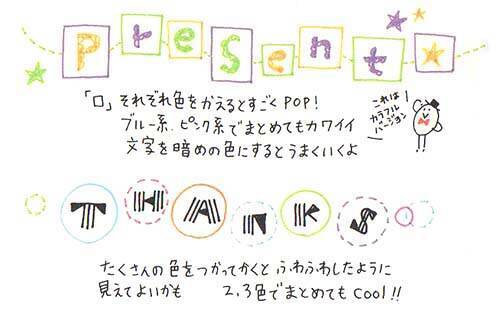 Present
「口」それぞれ色をかえるとすごくPOP!
ブルー系、ピンク系でまとめてもカワイイ
文字を暗めの色にするとうまくいくよ
これは
カラフル
バージョン
THANKS
たくさんの色をつかってかくと ふわふわしたように
見えてよいかも 2,3色でまとめてもCool!!